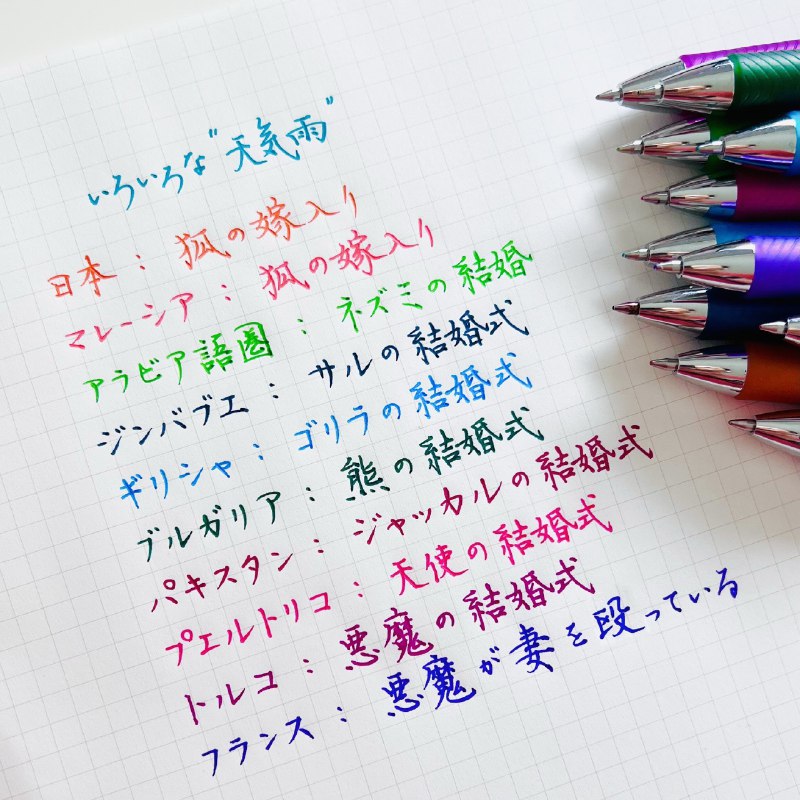 いろいろな"天気雨"
日本：狐の嫁入り
マレーシア：狐の嫁入り
アラビア語圏：ネズミの結婚
ジンバブエ：サルの結婚式
ギリシャ：ゴリラの結婚式
ブルガリア：熊の結婚式
パキスタン：ジャッカルの結婚式
プエルトリコ：天使の結婚式
トルコ：悪魔の結婚式
フランス：悪魔が妻を殴っている